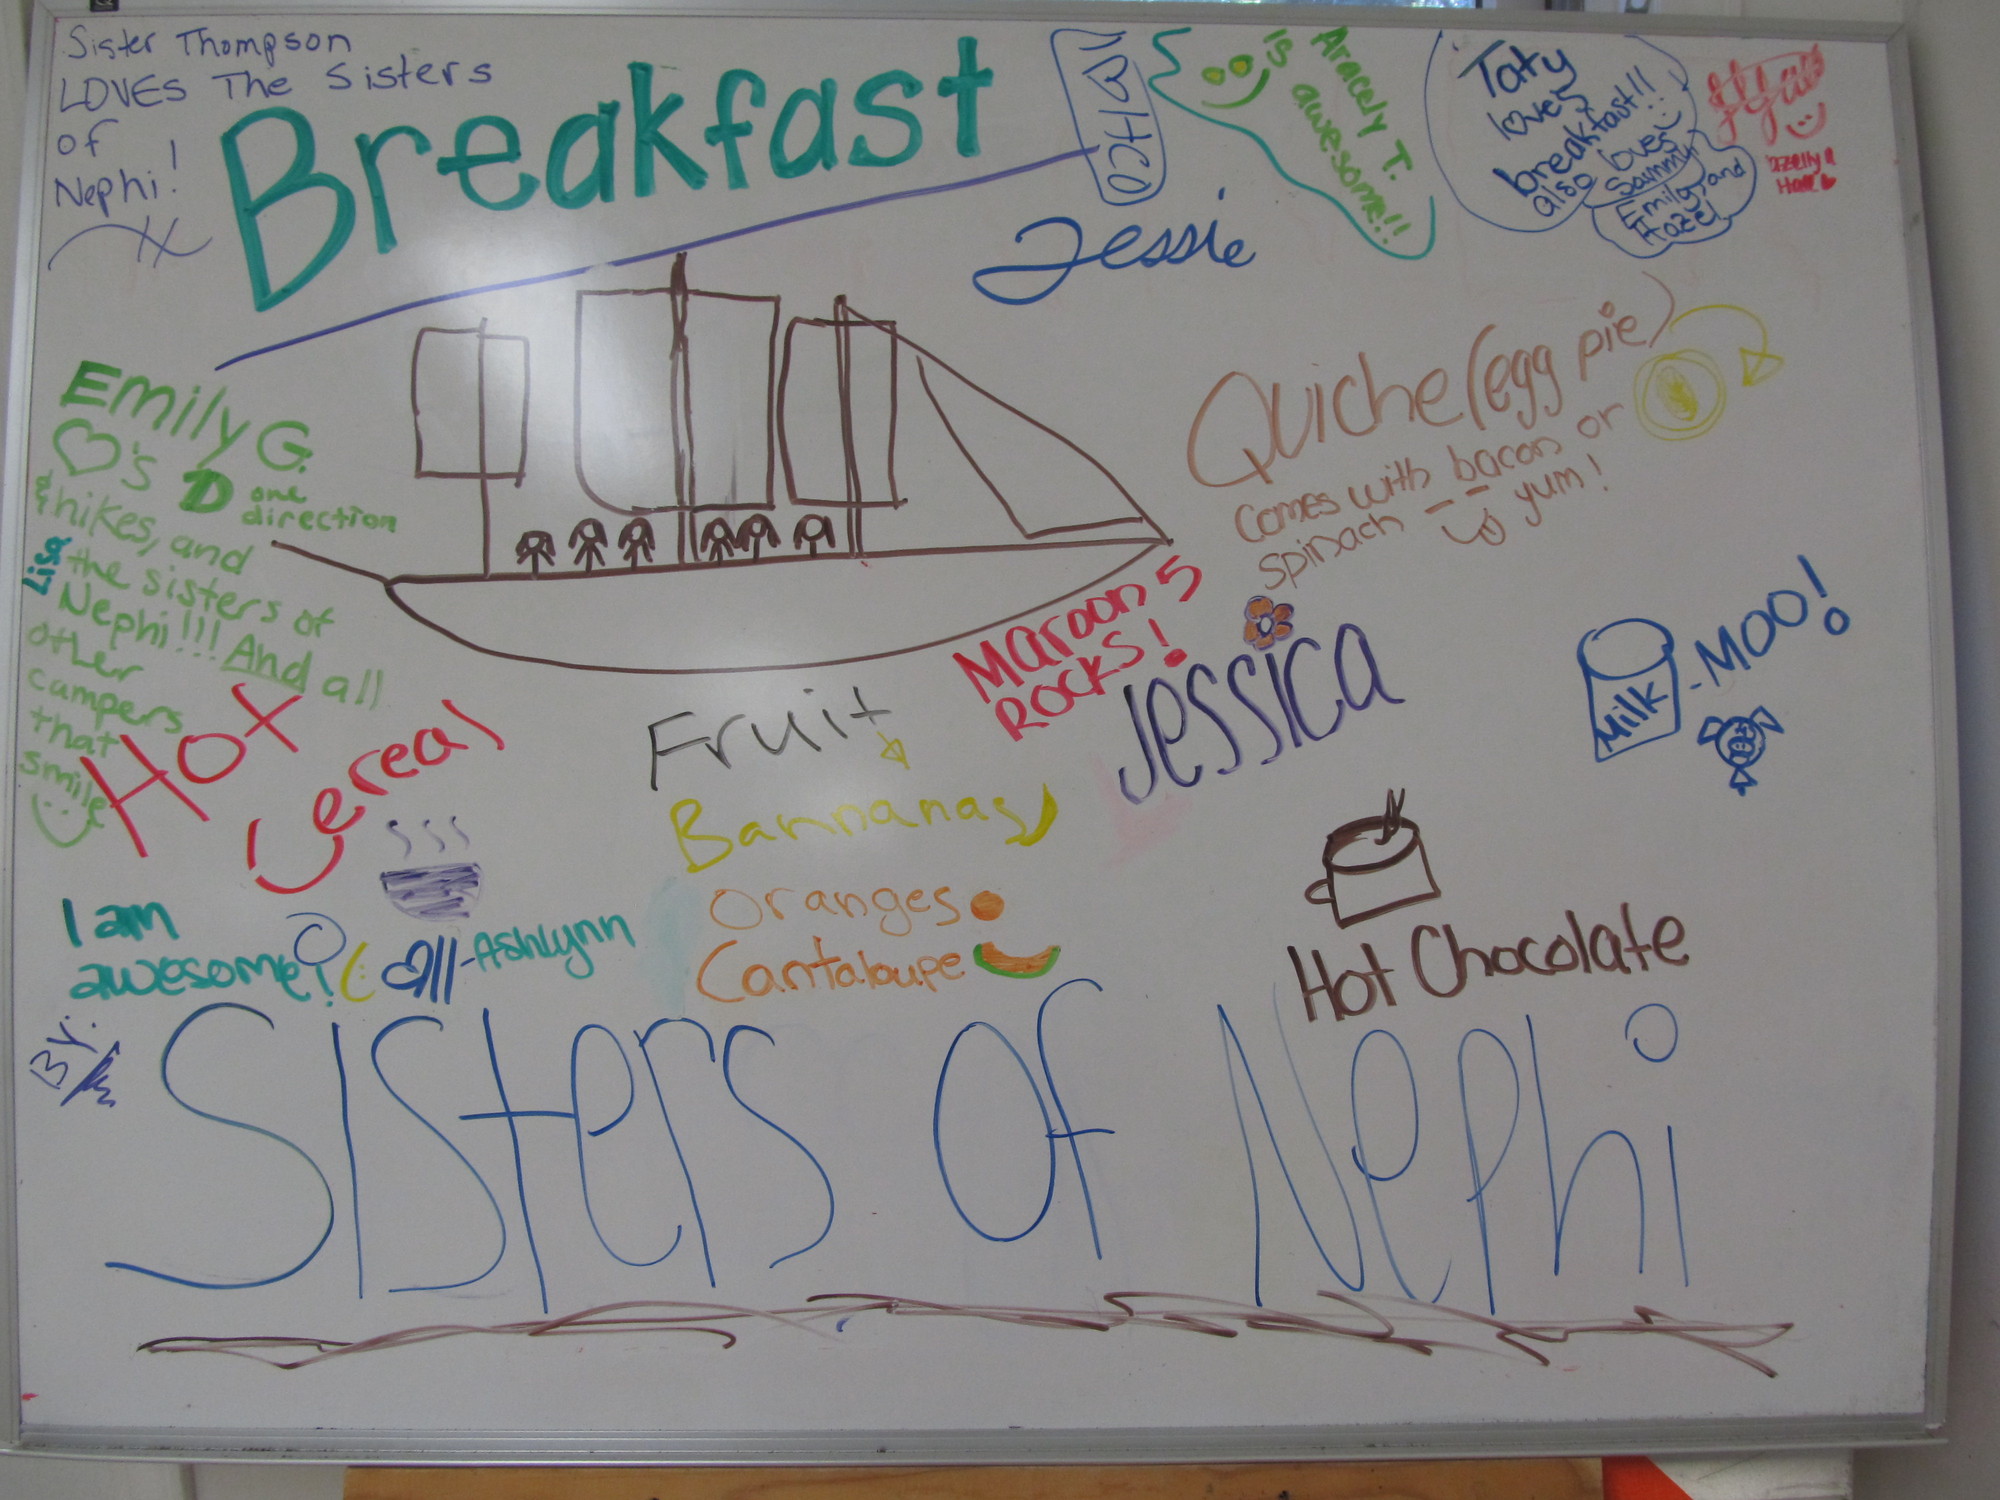 Sister Thompson
LOVES The Sisters
of
Nephi!
Breakfast
I ♡ HCO
Jessie
Aracely T.
is awesome!!
Taty
loves
breakfast!!
also loves
Sammy,
Emily, and
Hazel
Emily G.
♡'s 1D one
direction
& hikes, and
the sisters of
Nephi!!! And all
other
campers
that
smile
Lisa
Quiche (egg pie)
comes with bacon or
spinach yum!
Maroon 5
ROCKS!
Jessica
Milk - MOO!
Hot
Cereal
Fruit
Bannanas
Oranges
Cantaloupe
Hot Chocolate
I am
awesome!
♡ all - Ashlynn
BY:
Sisters of Nephi